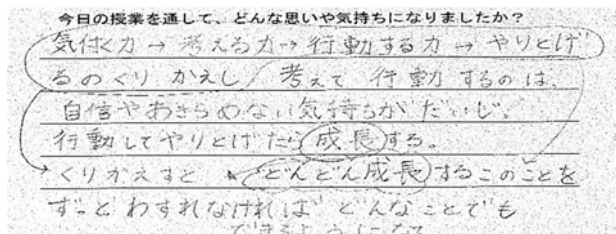 今日の授業を通して、どんな思いや気持ちになりましたか？
気付く力→考える力→行動する力→やりとげ
るのくりかえし 考えて行動するのは、
自信やあきらめない気持ちがだいじ。
行動してやりとげたら成長する。
→くりかえすと どんどん成長するこのことを
ずっとわすれなければどんなことでも
できるようになる